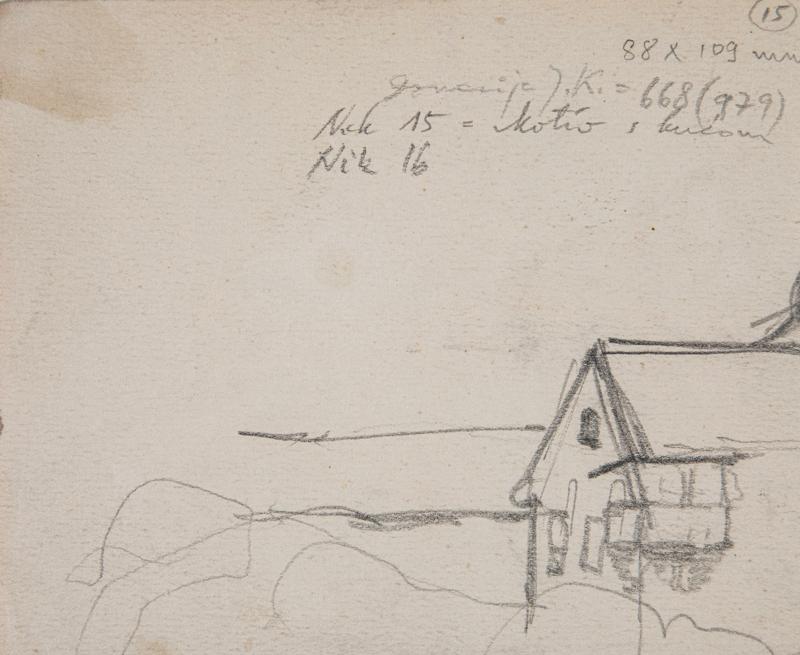 15
88 X 109 mm
donacija J.K. = 668 (979)
Nek 15 = Motiv s kućom
Nik 16